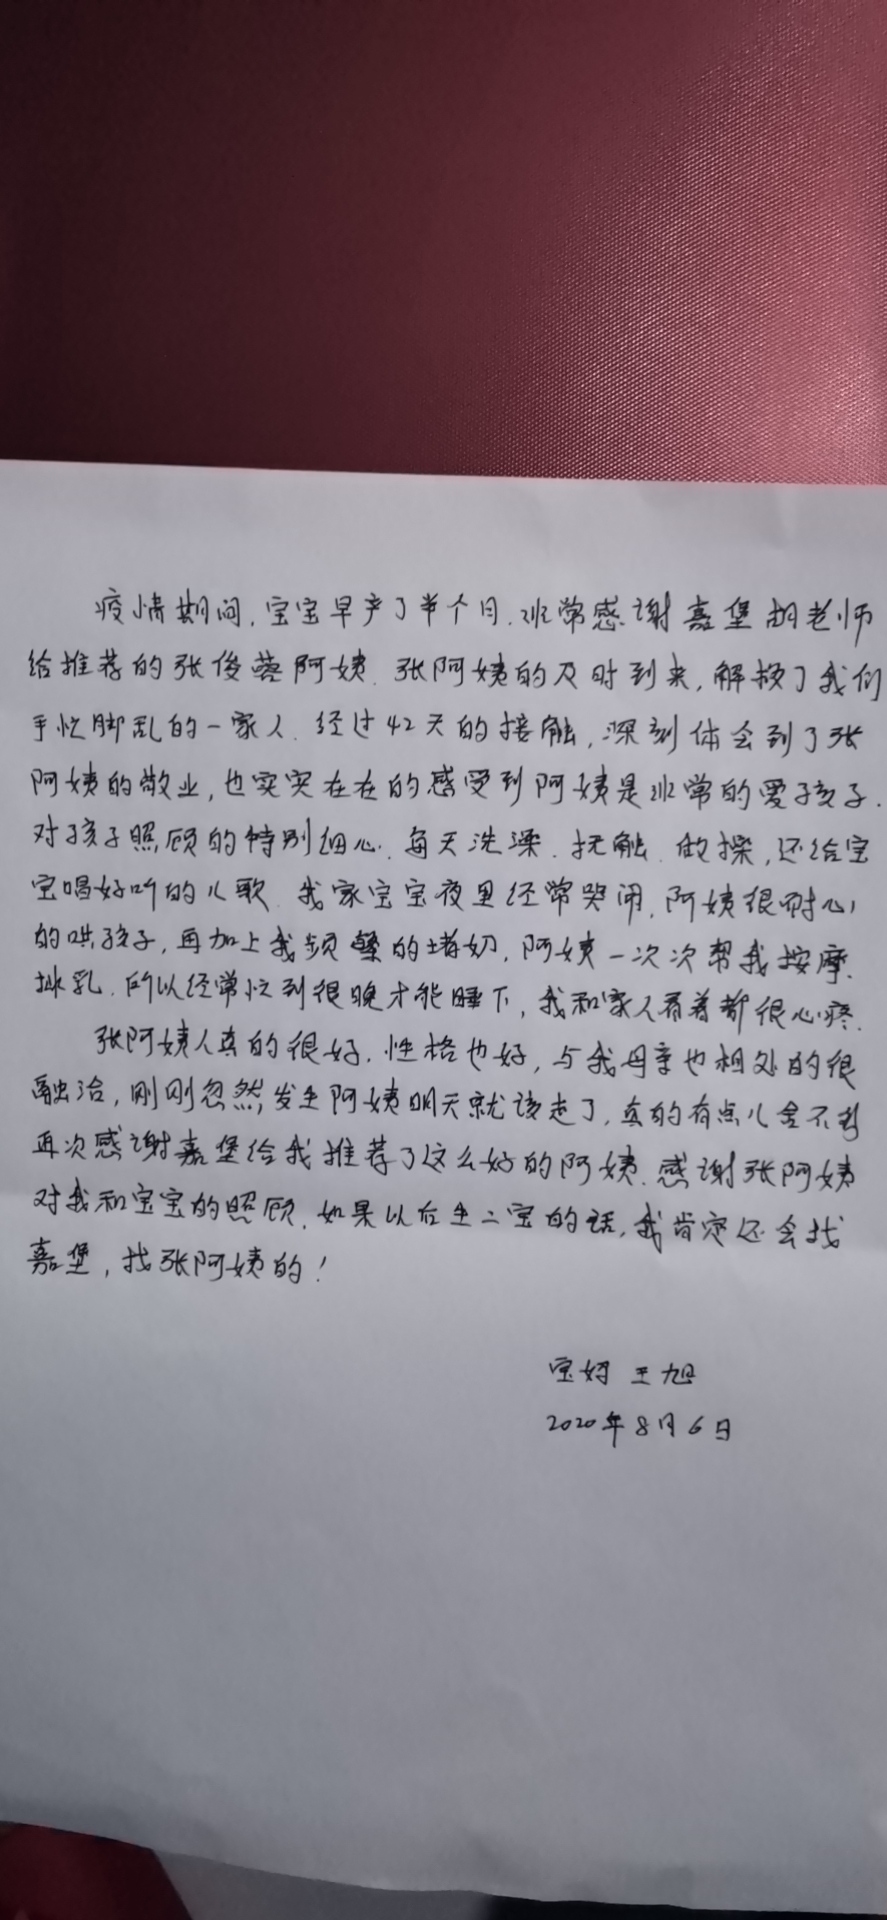 疫情期间，宝宝早产了半个月.非常感谢嘉堡胡老师
给推荐的张俊蓉阿姨.张阿姨的及时到来，解救了我们
手忙脚乱的一家人.经过42天的接触，深刻体会到了张
阿姨的敬业，也实实在在的感受到阿姨是非常的爱孩子.
对孩子照顾的特别细心.每天洗澡.抚触.做操，还给宝
宝唱好听的儿歌.我家宝宝夜里经常哭闹，阿姨很耐心
的哄孩子，再加上我频繁的堵奶，阿姨一次次帮我按摩.
排乳.所以经常忙到很晚才能睡下，我和家人看着都很心疼.
张阿姨人真的很好.性格也好，与我母亲也相处的很
融洽，刚刚忽然发生阿姨明天就该走了，真的有点儿舍不得
再次感谢嘉堡给我推荐了这么好的阿姨.感谢张阿姨
对我和宝宝的照顾.如果以后生二宝的话，我肯定还会找
嘉堡，找张阿姨的！
宝妈 王旭
2020年8月6日